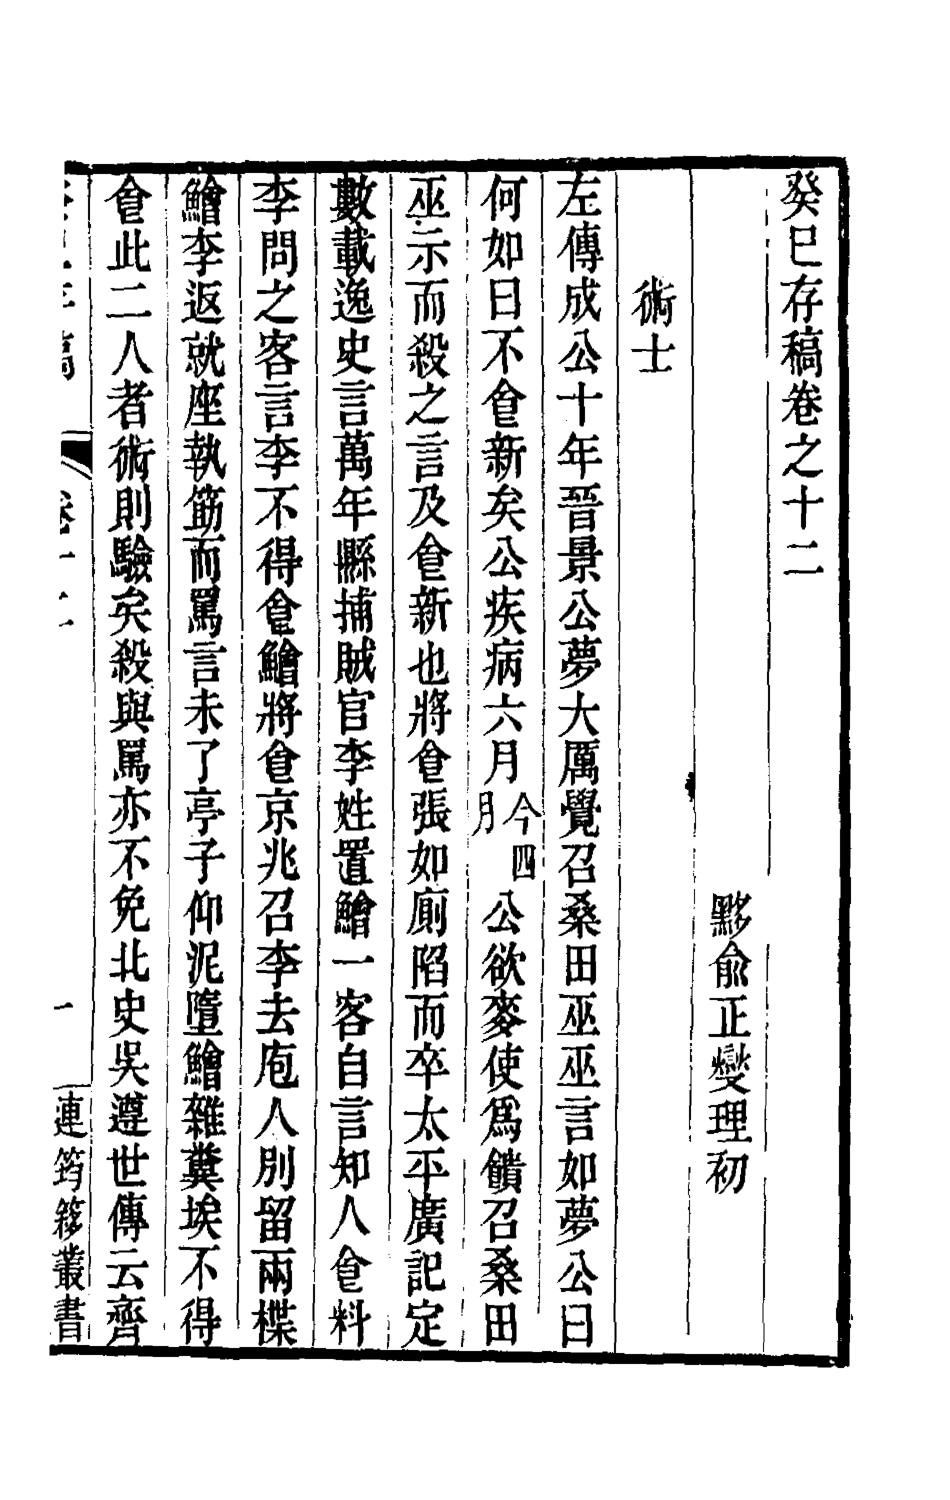 癸巳存稿卷之十二
黟俞正燮理初
術士
左傳成公十年晉景公夢大厲覺召桑田巫巫言如夢公曰
何如曰不食新矣公疾病六月今四月公欲麥使爲饋召桑田
巫示而殺之言及食新也將食張如廁陷而卒太平廣記定
數載逸史言萬年縣捕賊官李姓置鱠一客自言知人食料
李問之客言李不得食鱠將食京兆召李去庖人別留兩楪
鱠李返就座執筯而罵言未了亭子仰泥墮鱠雜糞埃不得
食此二人者術則驗矣殺與罵亦不免北史吳遵世傳云齊
癸巳存稿 卷十二 一 連筠簃叢書